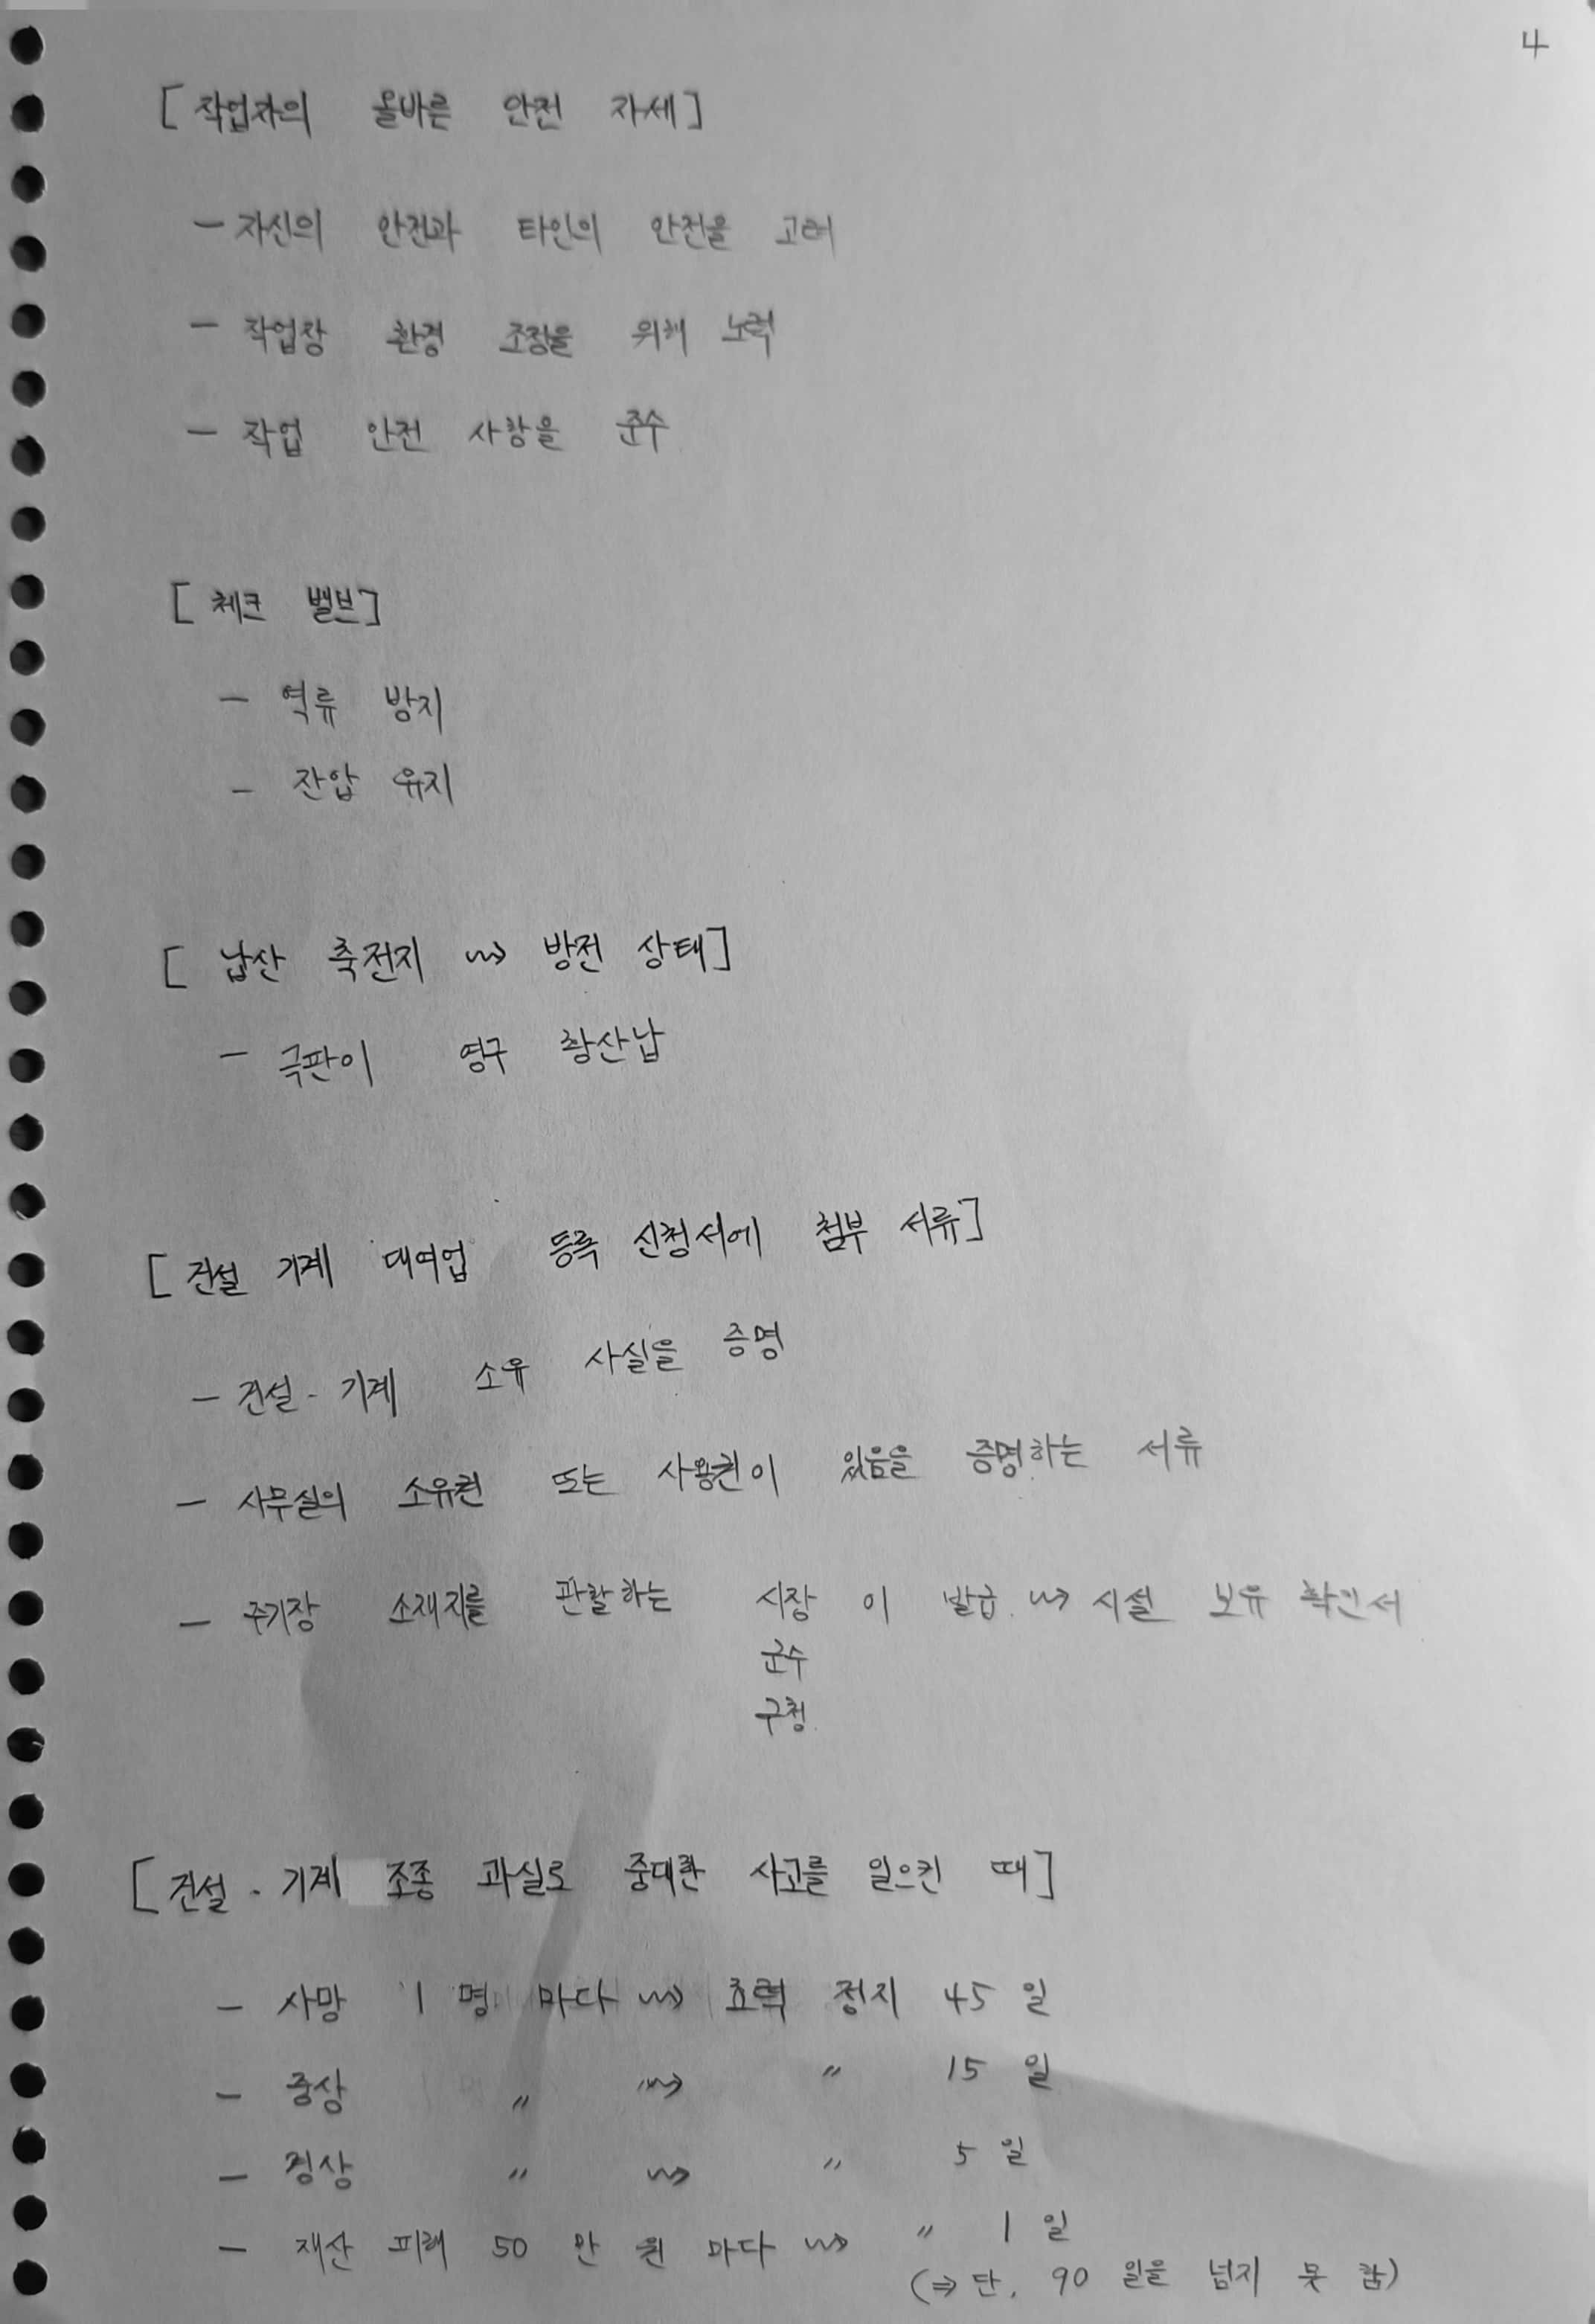 4
[작업자의 올바른 안전 자세]
- 자신의 안전과 타인의 안전을 고려
- 작업장 환경 조성을 위해 노력
- 작업 안전 사항을 준수
[체크 밸브]
- 역류 방지
- 잔압 유지
[납산 축전지 ⇝ 방전 상태]
- 극판이 영구 황산납
[건설 기계 대여업 등록 신청서에 첨부 서류]
- 건설 - 기계 소유 사실을 증명
- 사무실의 소유권 또는 사용권이 있음을 증명하는 서류
- 주기장 소재지를 관할하는 시장 이 발급 ⇝ 시설 보유 확인서
군수
구청
[건설 - 기계 조종 과실로 중대한 사고를 일으킨 때]
- 사망 1 명 마다 ⇝ 효력 정지 45 일
- 중상 〃 ⇝ 〃 15 일
- 경상 〃 ⇝ 〃 5 일
- 재산 피해 50 만 원 마다 ⇝ 〃 1 일
(⇒ 단, 90 일을 넘지 못 함)